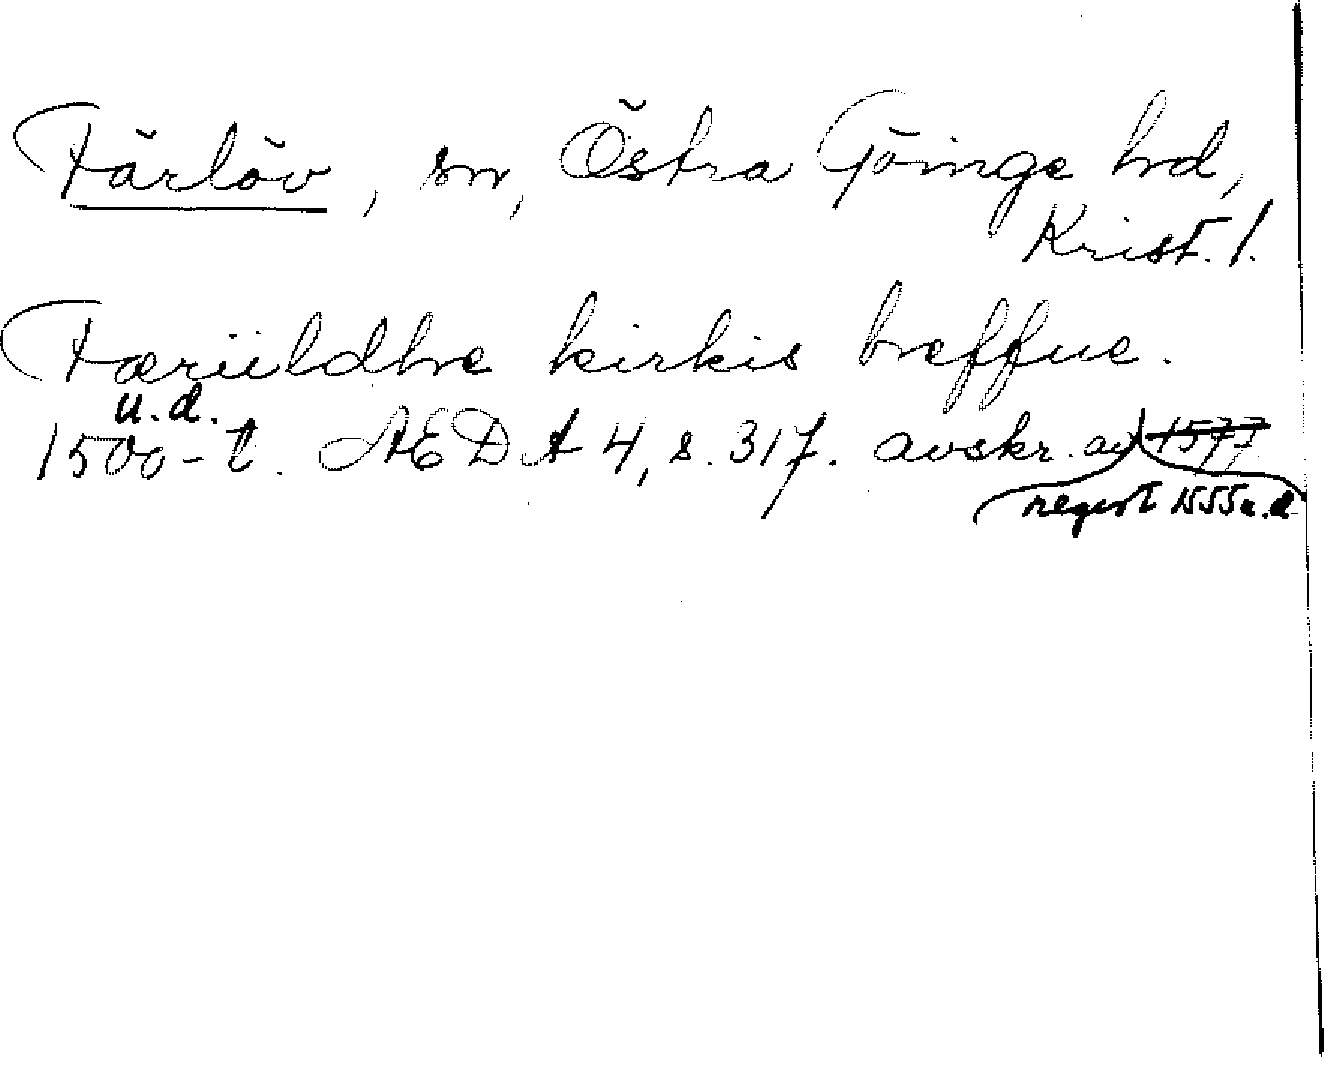 Färlöv, sn, Östra Göinge hd,
Krist. l.
Færiildhe kirkis breffue.
u.d.
1500-t. ÆDA 4, s. 317. avskr. av 1577
regist 1555 u.d.